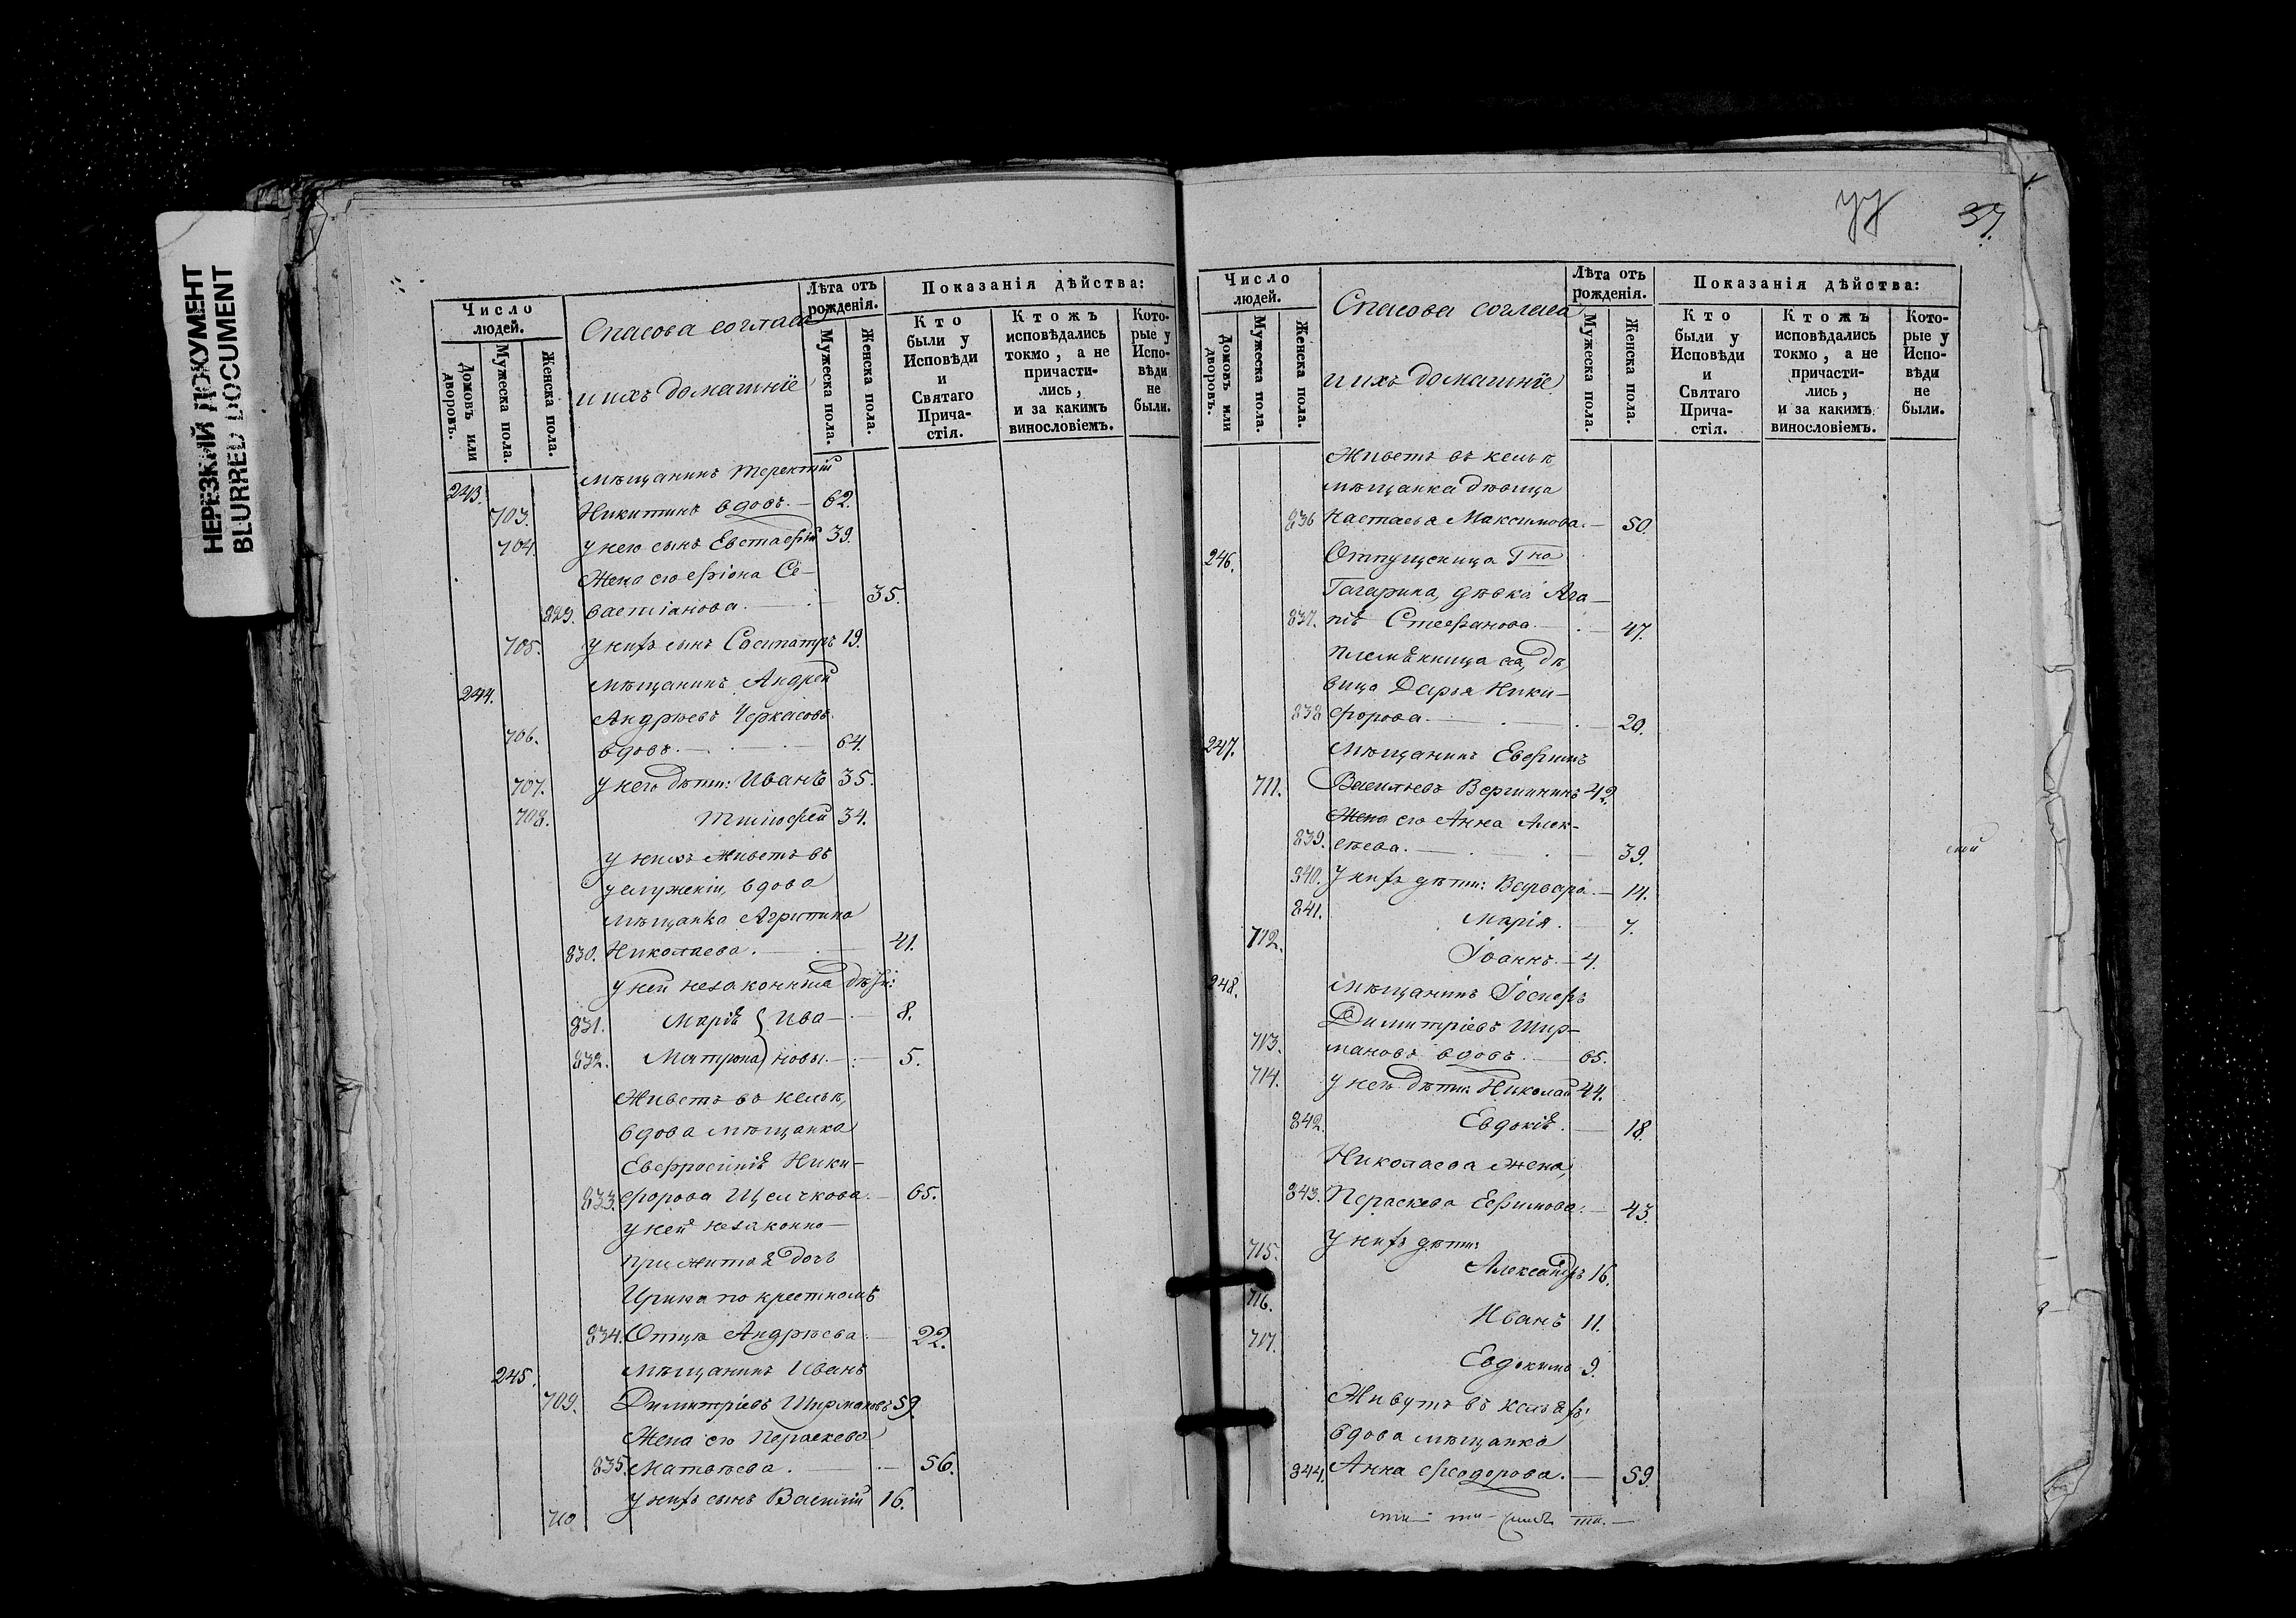 НЕРЕЗКИЙ ДОКУМЕНТ
BLURRED DOCUMENT
Число людей.
Домовъ или дворовъ.
Мужеска пола.
Женска пола.
Спасова согласа
и ихъ домашніе
Лѣта отъ рожденія.
Мужеска пола.
Женска пола.
Показанія дѣйства:
Кто были у Исповѣди и Святаго Причастія.
Ктожъ исповѣдались токмо, а не причастились, и за какимъ винословіемъ.
Которые у Исповѣди не были.
243. мѣщанинъ Терентій
703. Никитинъ вдовъ. — 62.
704. у него сынъ Евстафій 39.
Жена его Фіона Се-
829. вастіанова. — 35.
705. у нихъ сынъ Сосипатръ 19.
244. мѣщанинъ Андрей
Андреевъ Черкасовъ
706. вдовъ. — 64.
707. у него дѣти: Иванъ 35.
708. Тимофей 34.
у нихъ живетъ въ
услуженіи, вдова
мѣщанка Агрипина
830. Николаева. — 41.
у ней незаконныя дѣти:
831. Марія } Ива — 8.
832. Матрона } новы. — 5.
Живетъ въ кельѣ,
вдова мѣщанка
Евфросинія Ники-
833. форова Щелчкова. — 65.
у ней незаконно-
прижитая дочь
Ирина по крестному
834. Отцѣ Андреева. — 22.
245. мѣщанинъ Иванъ
709. Димитріевъ Ширмановъ 59.
Жена его Параскева
835. Матвѣева. — 56.
710 у нихъ сынъ Василій 16.
37.
Число людей.
Домовъ или дворовъ.
Мужеска пола.
Женска пола.
Спасова согласа
и ихъ домашніе
Лѣта отъ рожденія.
Мужеска пола.
Женска пола.
Показанія дѣйства:
Кто были у Исповѣди и Святаго Причастія.
Ктожъ исповѣдались токмо, а не причастились, и за какимъ винословіемъ.
Которые у Исповѣди не были.
Живетъ въ кельѣ,
мѣщанка дѣвица
836 Настасья Максимова. — 50.
246. Отпущеница Гна
Гагарина, дѣвка Ага-
837. пія Стефанова. — 47.
племянница ея, дѣ-
вица Дарья Ники-
838 форова. — 20.
247. Мѣщанинъ Евфимъ
711. Васильевъ Вершининъ 42.
Жена его Анна Алек-
839. сѣева. — 39.
840. У нихъ дѣти: Варвара. — 14.
841. Марія. — 7.
712. Іоаннъ. — 4.
248. Мѣщанинъ Іосифъ
Димитріевъ Шир-
713. мановъ вдовъ. — 65.
714. у него дѣти: Николай 44.
842. Евдокія. — 18.
Николаева жена,
843. Параскева Ефимова. — 43.
У нихъ дѣти:
715. Александръ 16.
716. Иванъ 11.
717. Евдокимъ 9.
Живутъ въ кельяхъ:
вдова мѣщанка
844. Анна Феодорова. — 59.